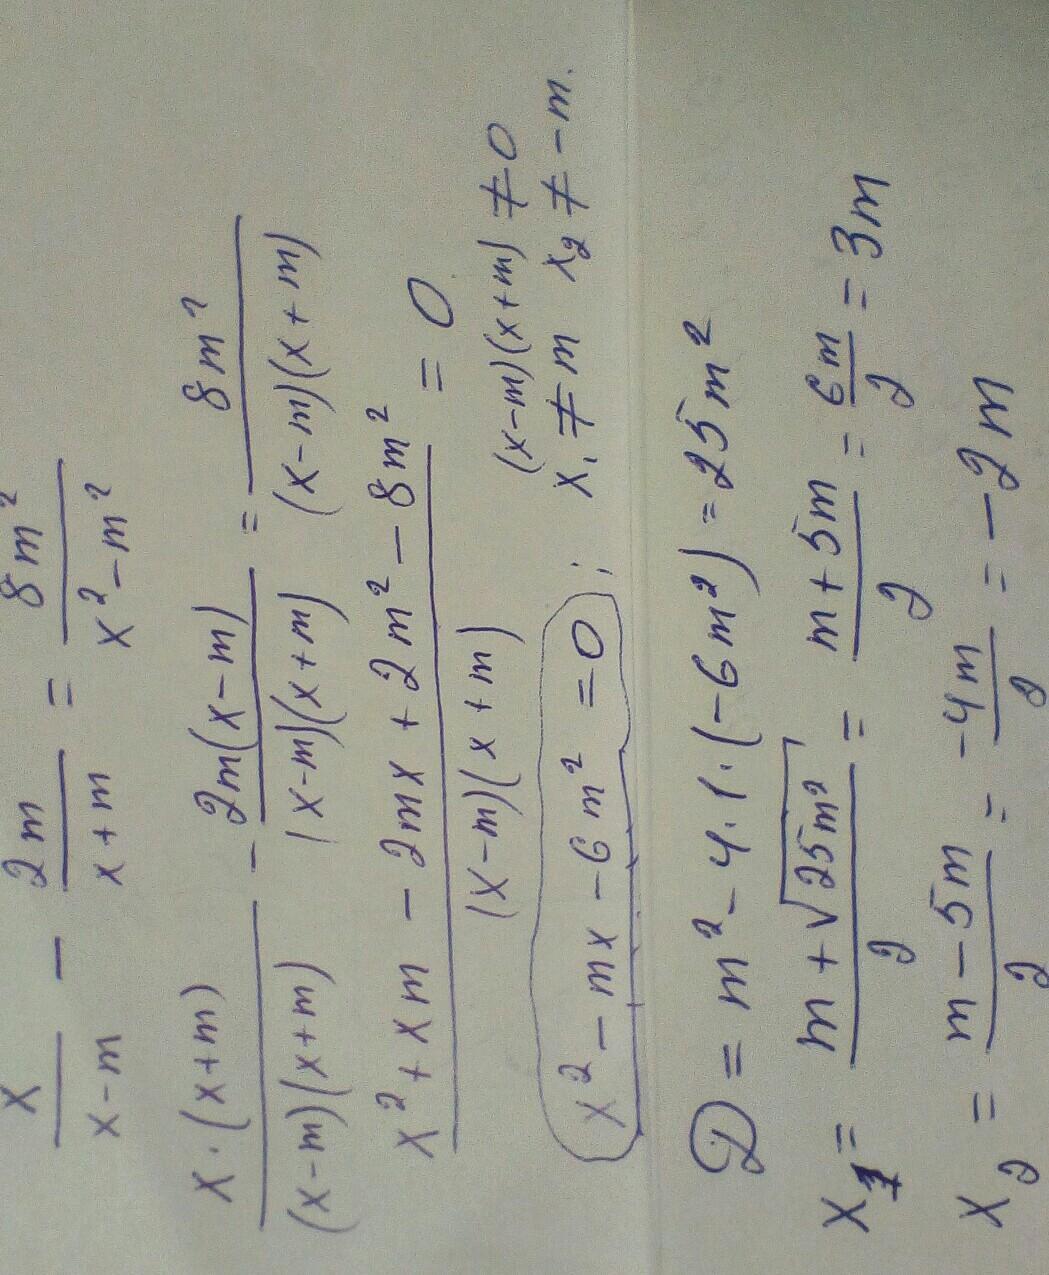 x/(x-m) - 2m/(x+m) = 8m²/(x²-m²)
x·(x+m)/((x-m)(x+m)) - 2m(x-m)/((x-m)(x+m)) = 8m²/((x-m)(x+m))
(x²+xm-2mx+2m²-8m²)/((x-m)(x+m)) = 0
(x-m)(x+m) ≠ 0
x²-mx-6m²=0; x₁≠m x₂≠-m.
D = m²-4·1·(-6m²)=25m²
x₁= (m+√25m²)/2 = (m+5m)/2 = 6m/2 = 3m
x₂ = (m-5m)/2 = -4m/2 = -2m